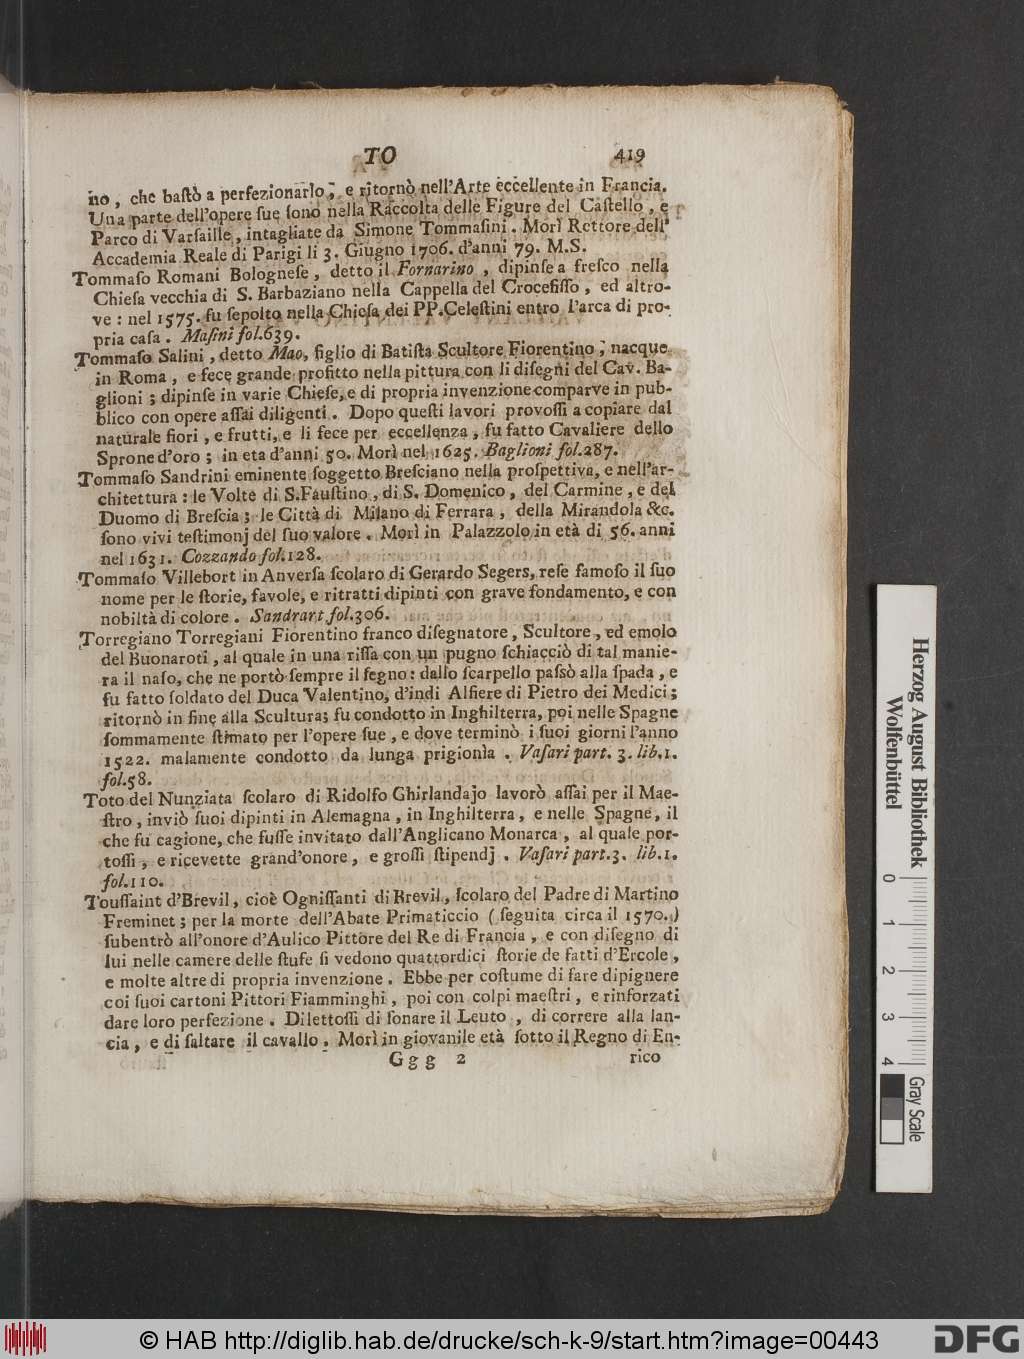 TO 419
no, che baſtò a perfezionarlo, e ritornò nell'Arte eccellente in Francia.
Una parte dell'opere ſue ſono nella Raccolta delle Figure del Caſtello, e
Parco di Varſaille, intagliate da Simone Tommaſini. Morì Rettore dell'
Accademia Reale di Parigi li 3. Giugno 1706. d'anni 79. M.S.
Tommaſo Romani Bologneſe, detto il Fornarino, dipinſe a freſco nella
Chieſa vecchia di S. Barbaziano nella Cappella del Crocefiſſo, ed altro-
ve : nel 1575. fu ſepolto nella Chieſa dei PP. Celeſtini entro l'arca di pro-
pria caſa. Maſini fol.639.
Tommaſo Salini, detto Mao, figlio di Batiſta Scultore Fiorentino, nacque
in Roma, e fece grande profitto nella pittura con li diſegni del Cav. Ba-
glioni ; dipinſe in varie Chieſe, e di propria invenzione comparve in pub-
blico con opere aſſai diligenti. Dopo queſti lavori provoſſi a copiare dal
naturale fiori, e frutti, e li fece per eccellenza, fu fatto Cavaliere dello
Sprone d'oro ; in eta d'anni 50. Morì nel 1625. Baglioni fol.287.
Tommaſo Sandrini eminente ſoggetto Breſciano nella proſpettiva, e nell'ar-
chitettura : le Volte di S. Fauſtino, di S. Domenico, del Carmine, e del
Duomo di Breſcia ; le Città di Milano di Ferrara, della Mirandola &c.
ſono vivi teſtimonj del ſuo valore. Morì in Palazzolo in età di 56. anni
nel 1631. Cozzando fol.128.
Tommaſo Villebort in Anverſa ſcolaro di Gerardo Segers, reſe famoſo il ſuo
nome per le ſtorie, favole, e ritratti dipinti con grave fondamento, e con
nobiltà di colore. Sandrart fol.306.
Torregiano Torregiani Fiorentino franco diſegnatore, Scultore, ed emolo
del Buonaroti, al quale in una riſſa con un pugno ſchiacciò di tal manie-
ra il naſo, che ne portò ſempre il ſegno: dallo ſcarpello paſsò alla ſpada, e
fu fatto ſoldato del Duca Valentino, d'indi Alfiere di Pietro dei Medici ;
ritornò in fine alla Scultura; fu condotto in Inghilterra, poi nelle Spagne
ſommamente ſtimato per l'opere ſue, e dove terminò i ſuoi giorni l'anno
1522. malamente condotto da lunga prigionìa. Vaſari part. 3. lib.1.
fol.58.
Toto del Nunziata ſcolaro di Ridolfo Ghirlandajo lavorò aſſai per il Mae-
ſtro, inviò ſuoi dipinti in Alemagna, in Inghilterra, e nelle Spagne, il
che fu cagione, che fuſſe invitato dall'Anglicano Monarca, al quale por-
toſſi, e ricevette grand'onore, e groſſi ſtipendj. Vaſari part.3. lib.1.
fol.110.
Touſſaint d'Brevil, cioè Ogniſſanti di Brevil, ſcolaro del Padre di Martino
Freminet ; per la morte dell'Abate Primaticcio (ſeguita circa il 1570.)
ſubentrò all'onore d'Aulico Pittore del Re di Francia, e con diſegno di
lui nelle camere delle ſtufe ſi vedono quattordici ſtorie de fatti d'Ercole,
e molte altre di propria invenzione. Ebbe per coſtume di fare dipignere
coi ſuoi cartoni Pittori Fiamminghi, poi con colpi maeſtri, e rinforzati
dare loro perfezione. Dilettoſſi di ſonare il Leuto, di correre alla lan-
cia, e di ſaltare il cavallo. Morì in giovanile età ſotto il Regno di En-
Ggg 2 rico
Herzog August Bibliothek
Wolfenbüttel
0 1 2 3 4
Gray Scale
© HAB http://diglib.hab.de/drucke/sch-k-9/start.htm?image=00443
DFG